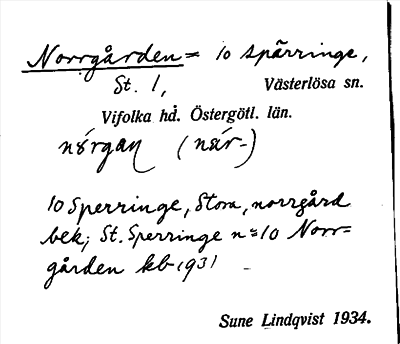 Norrgården = 10 Spärringe,
St. 1, Västerlösa sn.
Vifolka hd. Östergötl. län.
nórgaɳ (nær-)
10 Sperringe, Stora, norrgård
bek; St. Sperringe n=10 Norr=
gården kb 1931
Sune Lindqvist 1934.